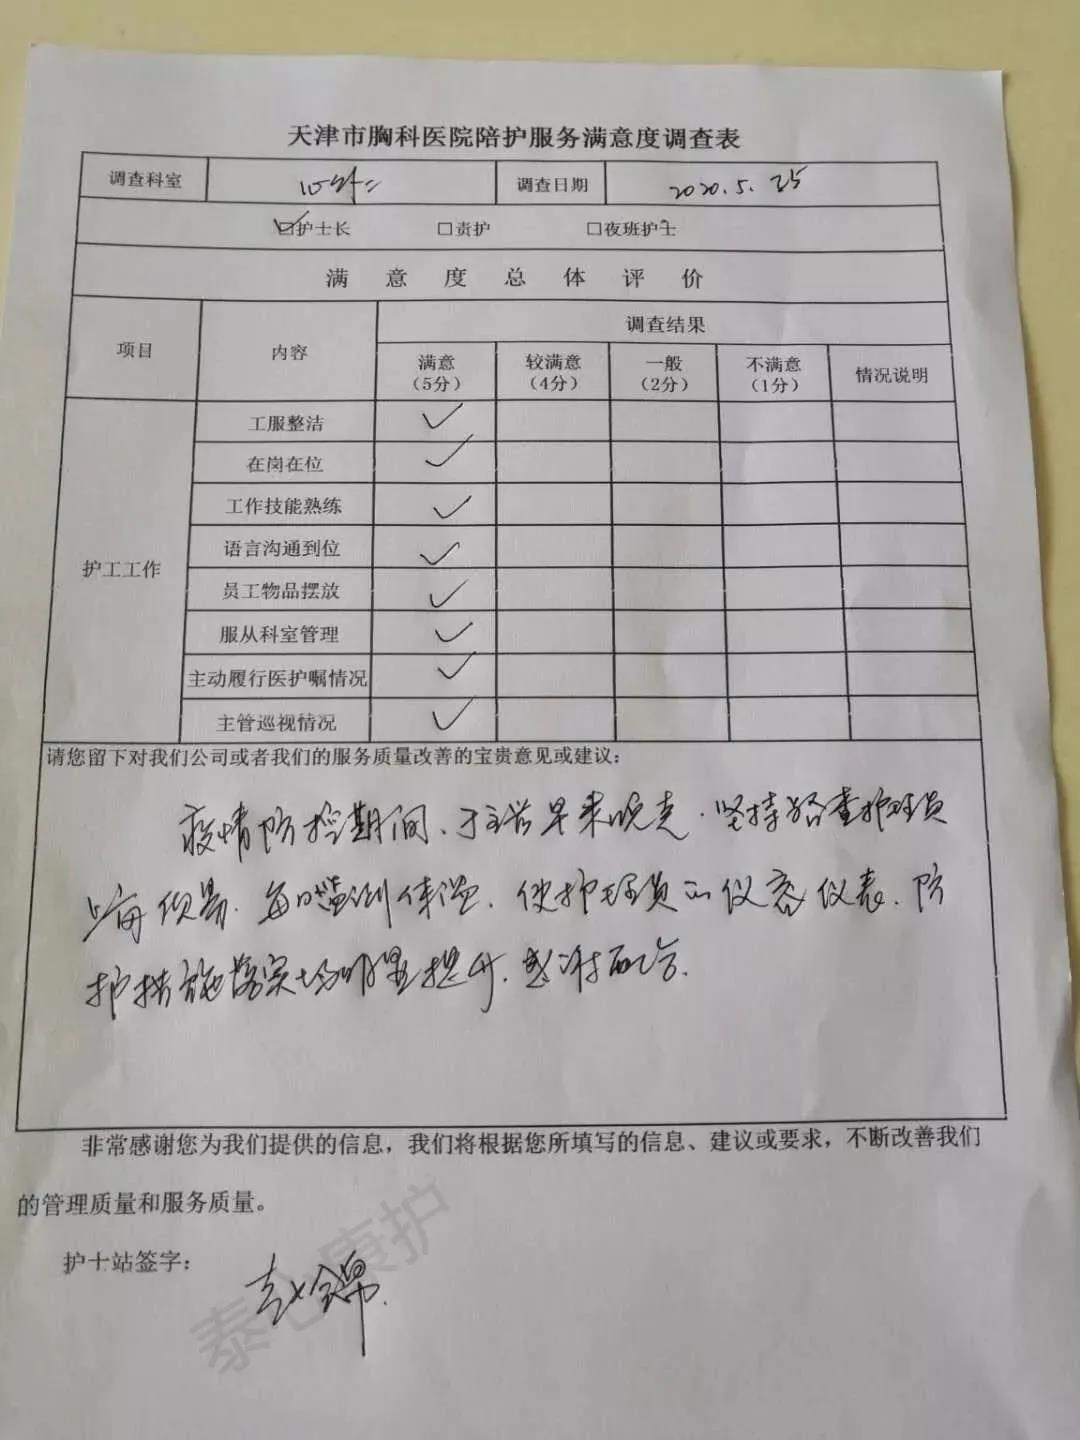 天津市胸科医院陪护服务满意度调查表
调查科室 心外二 调查日期 2020.5.25
☑护士长 □责护 □夜班护士
满意度总体评价
项目 内容 调查结果
满意（5分） 较满意（4分） 一般（2分） 不满意（1分） 情况说明
护工工作
工服整洁 ✓
在岗在位 ✓
工作技能熟练 ✓
语言沟通到位 ✓
员工物品摆放 ✓
服从科室管理 ✓
主动履行医护嘱情况 ✓
主管巡视情况 ✓
请您留下对我们公司或者我们的服务质量改善的宝贵意见或建议：
疫情防控期间、于主任早来晚走.坚持检查护理员
每日监测体温.使护理员的仪容仪表.防
护措施落实明显提升.感谢配合.
非常感谢您为我们提供的信息，我们将根据您所填写的信息、建议或要求，不断改善我们
的管理质量和服务质量。
护士站签字：
赵锦
泰心康护